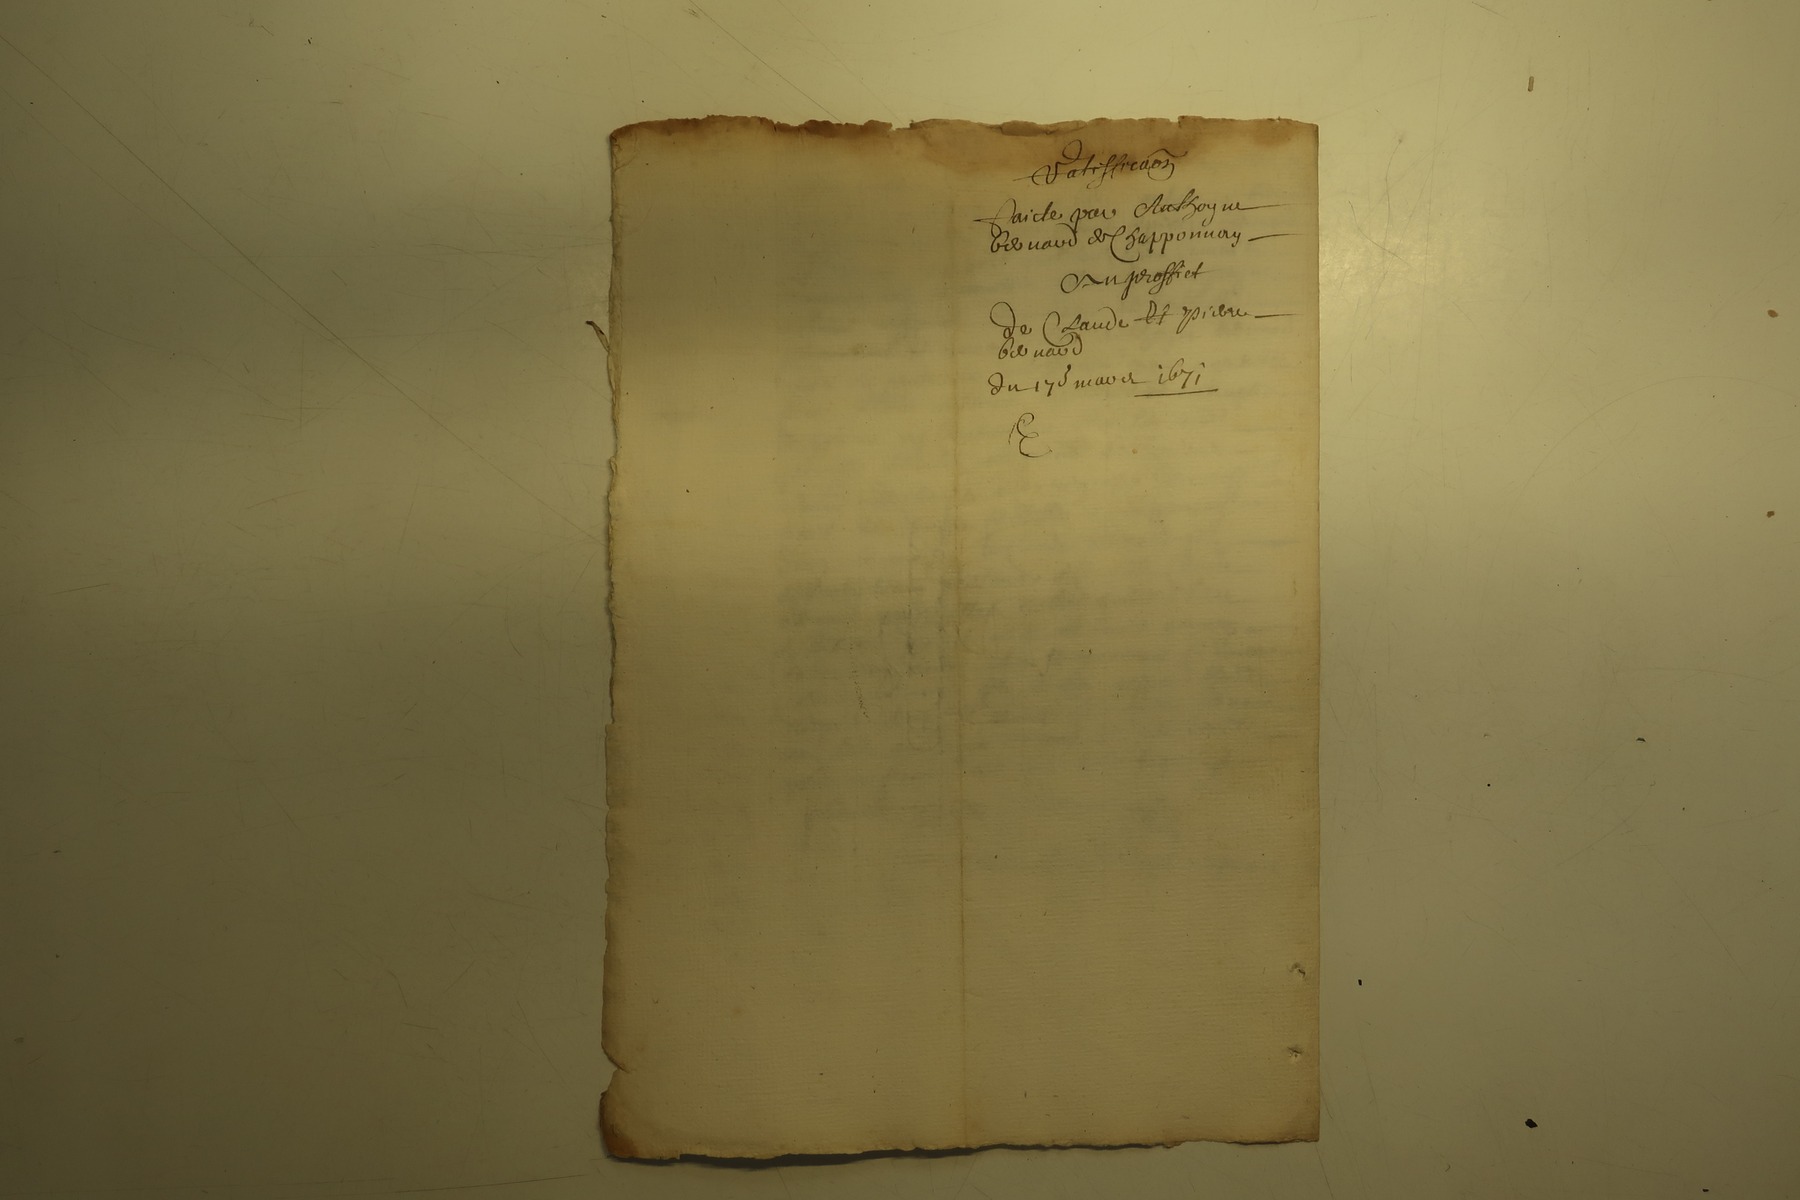 Ratifficaõn
Faicte par Anthoyne
bernard de Chapponnay
Au proffict
de Claude Et pierre
bernard
du 17e mars 1671